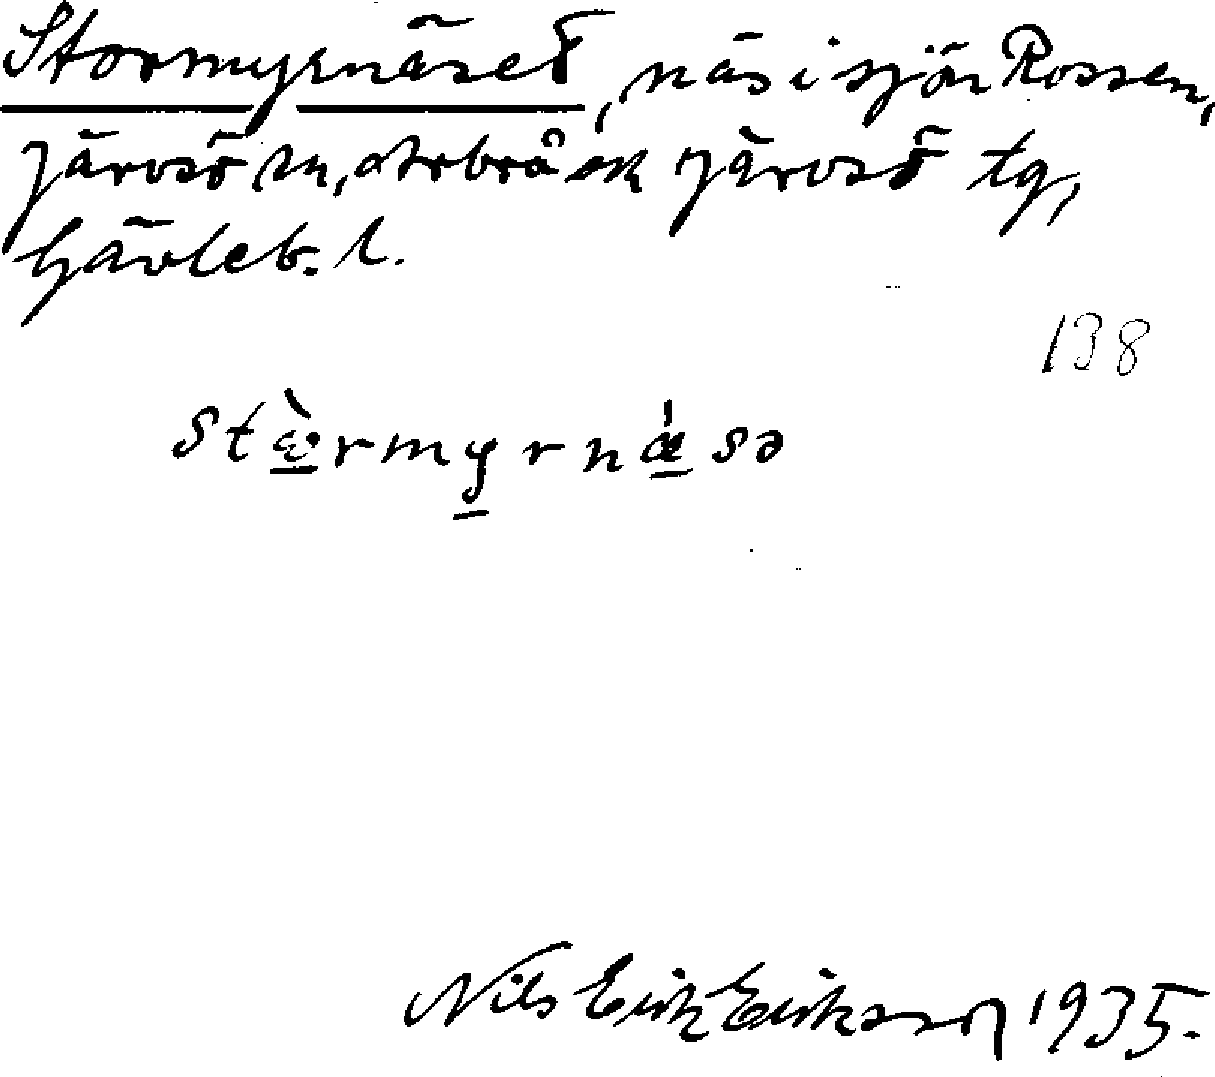 Stormyrnäset, näs i sjön Rossen,
Järvsö sn, Arbrå ok Järvsö tg,
Gävleb. l.
138
stὼrmyrnǽsə
Nils Erik Eriksson 1935.